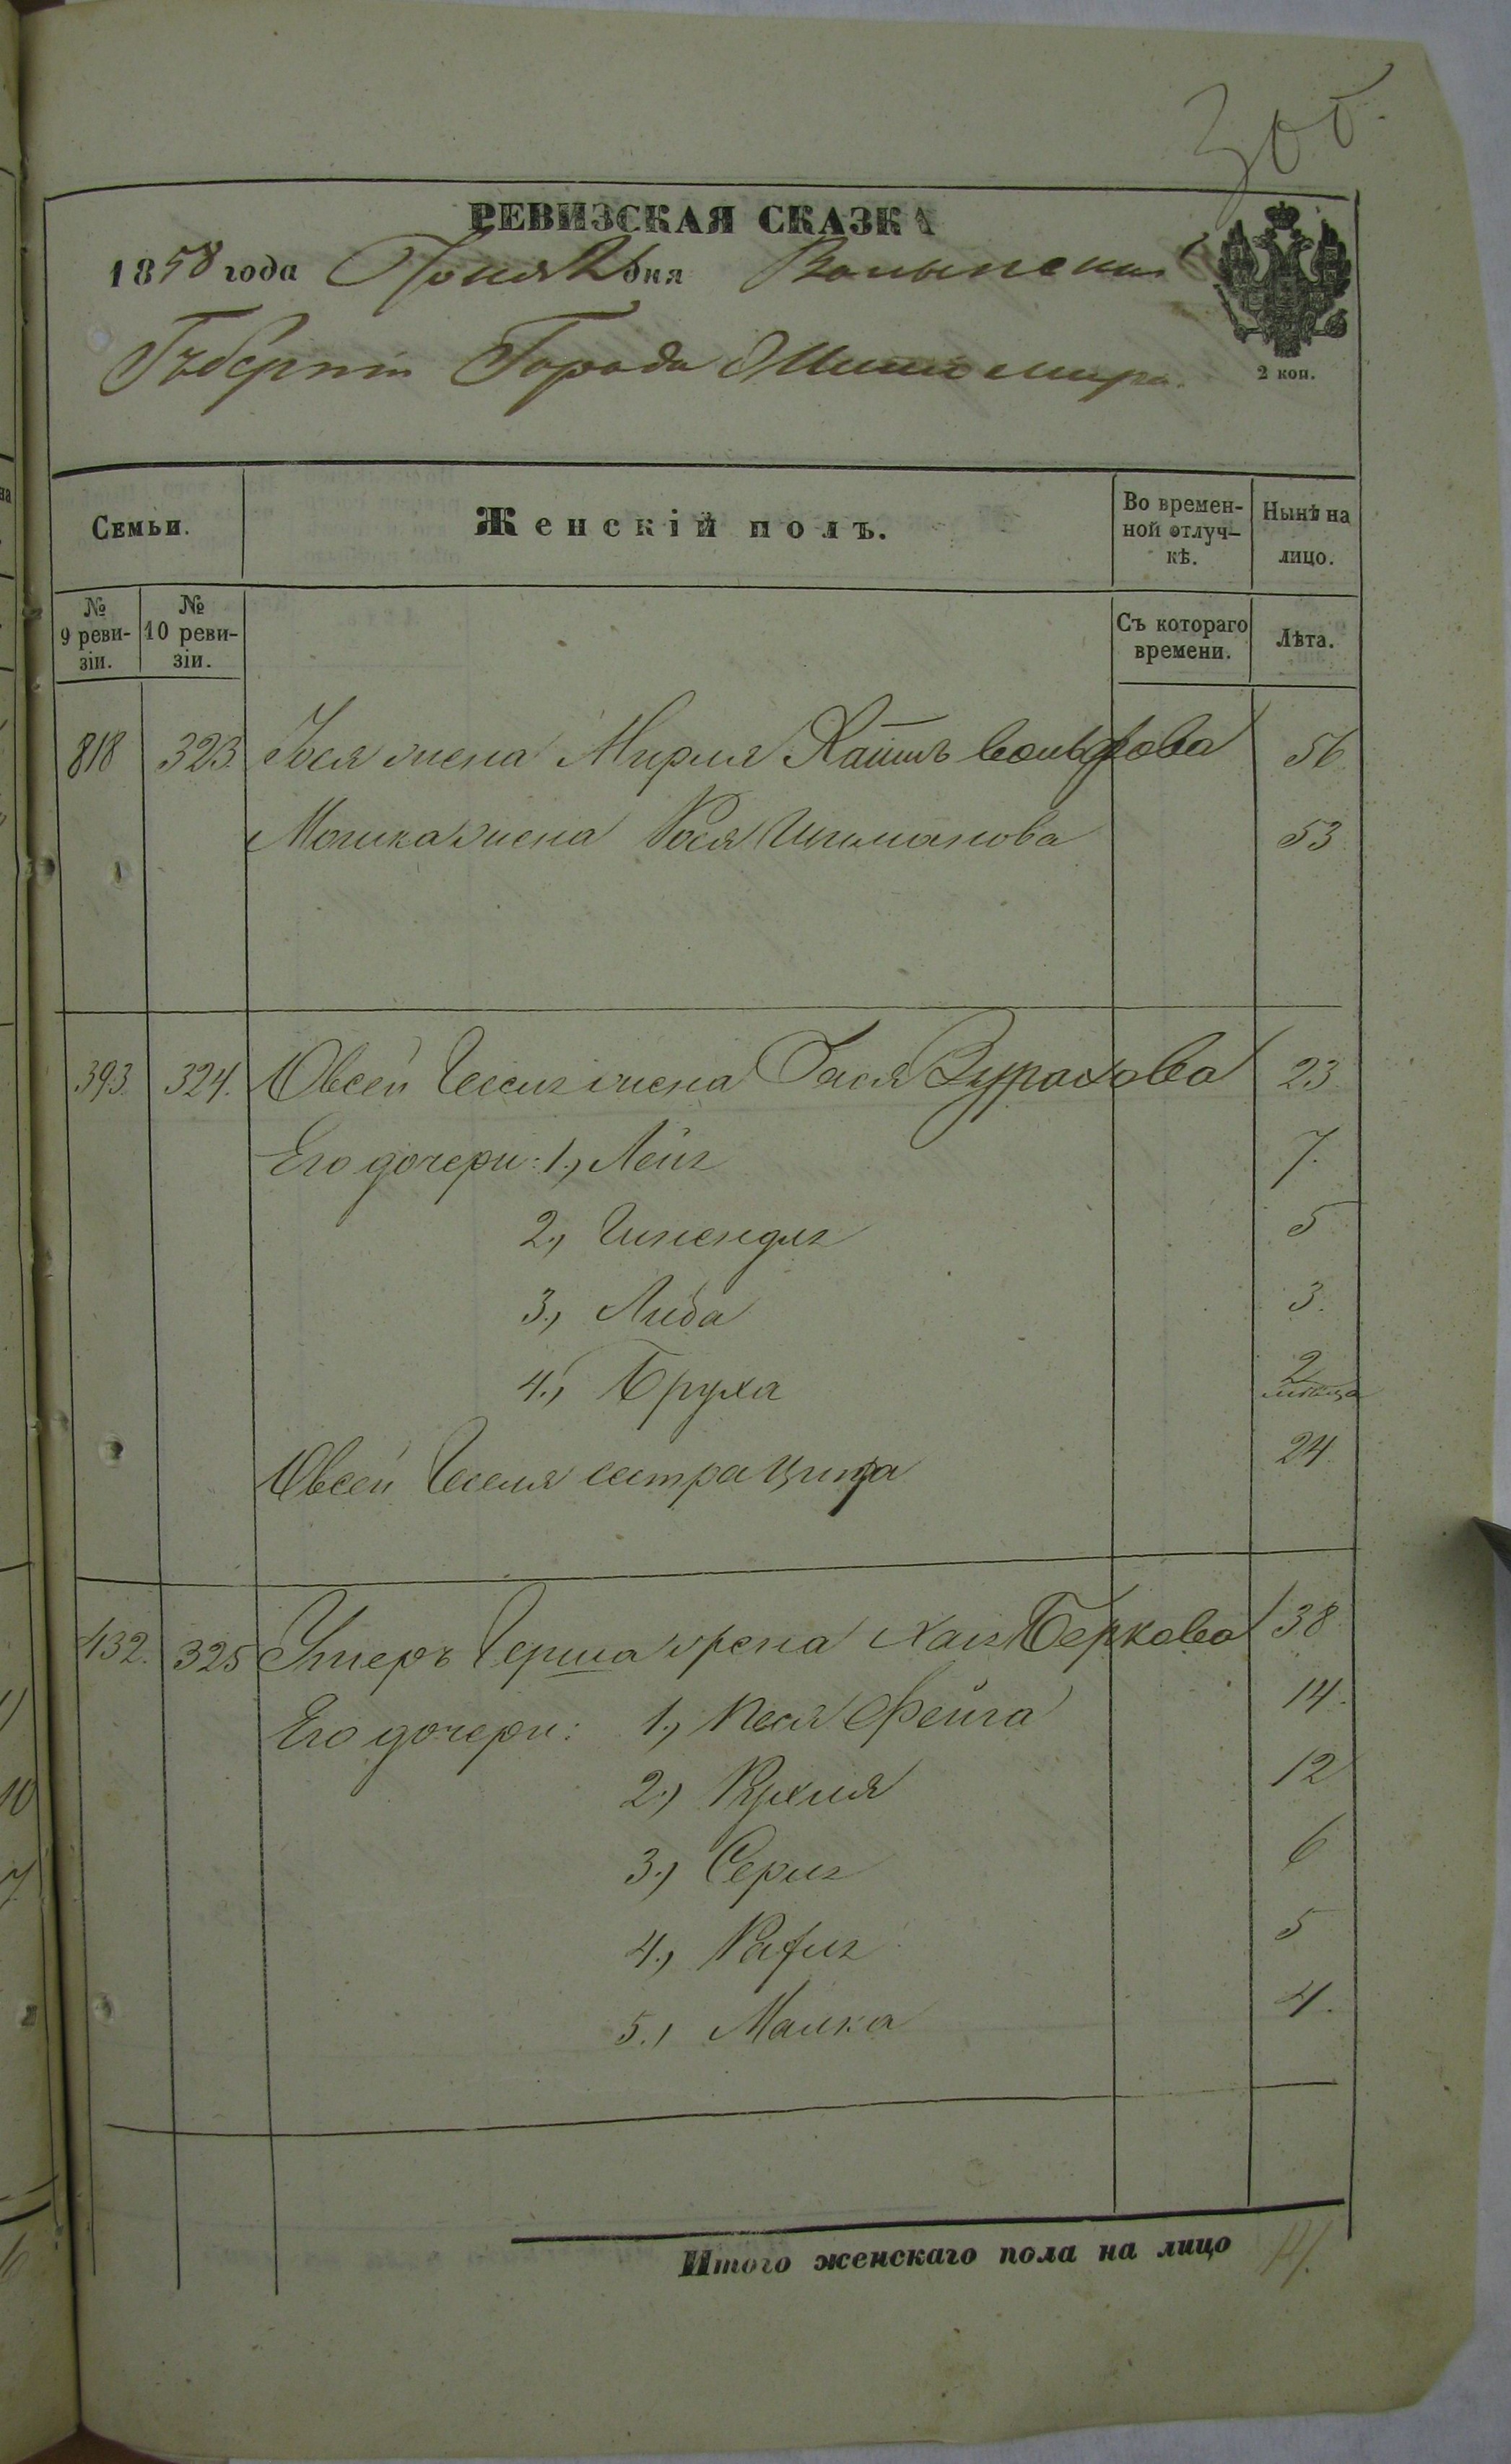 300.
РЕВИЗСКАЯ СКАЗКА
1858 года Іюня дня Волынской
Губерніи Города Житомира.
2 коп.
Семьи. Женскій полъ. Во времен-ной отлуч-кѣ. Нынѣ на лицо.
№ 9 реви-зіи. № 10 реви-зіи. Съ котораго времени. Лѣта.
818 323. жена Мирля Вольфова 56
Мошка жена Рося 53
393. 324. Овсей жена Гася 23
Его дочери: 1., Лея 7.
2., Шпендля 5
3., Либа 3.
4., Бруха 2 мѣсяца
Овсей сестра Ципа 24
132. 325 Умеръ Герша жена Хая Беркова 38
Его дочери: 1., Песя Фейга 14.
2.) Рухля 12
3.) Серля 6
4., 5
5., Малка 4.
Итого женскаго пола на лицо 14.